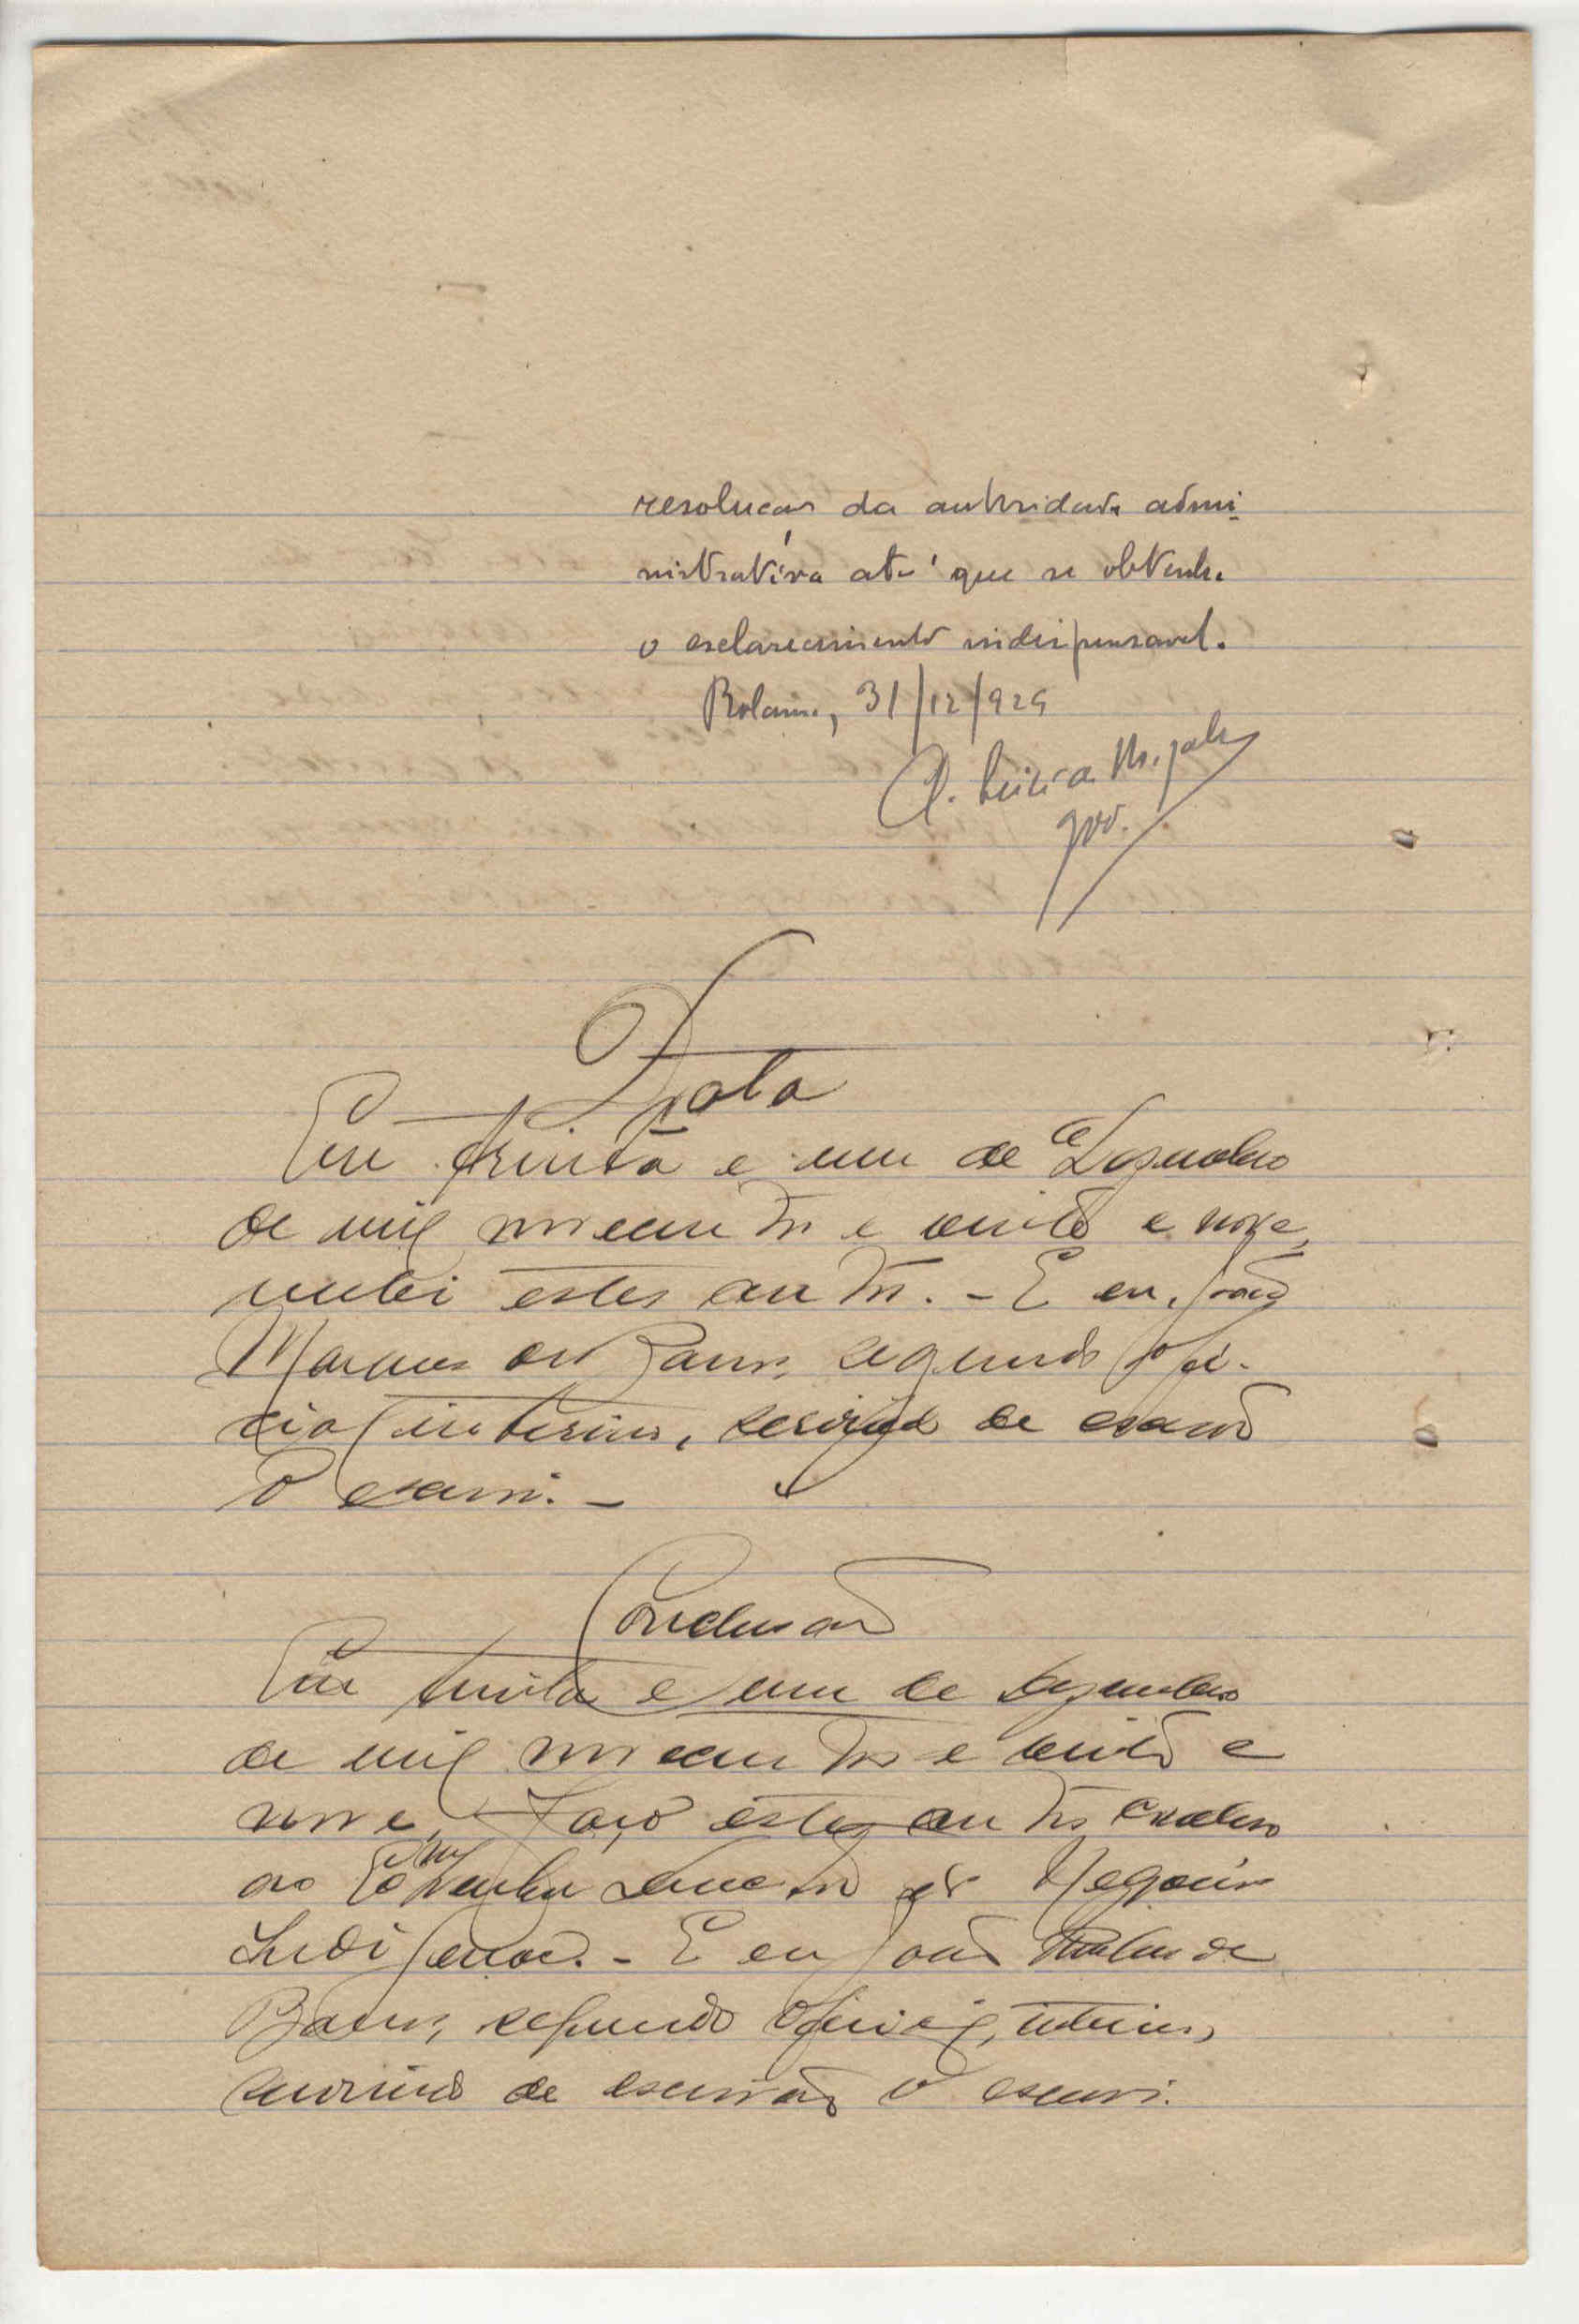 resolução da autoridade admi-
nistrativa até que se obtenha
o esclarecimento indispensavel.
Bolama, 31/12/929
gov.
Data
Em trinta e um de Dezembro
de mil novecentos e vinte e nove,
recebi estes autos. - E eu, João
de Barros, segundo ofi-
cial interino, servindo de escrivão
o escrevi. -
Conclusão
Em trinta e um de Dezembro
de mil novecentos e vinte e
nove, faço estes autos conclusos
ao Exmo Senhor dos Negocios
Indigenas. - E eu João de
Barros, segundo oficial, interino,
servindo de escrivão o escrevi.